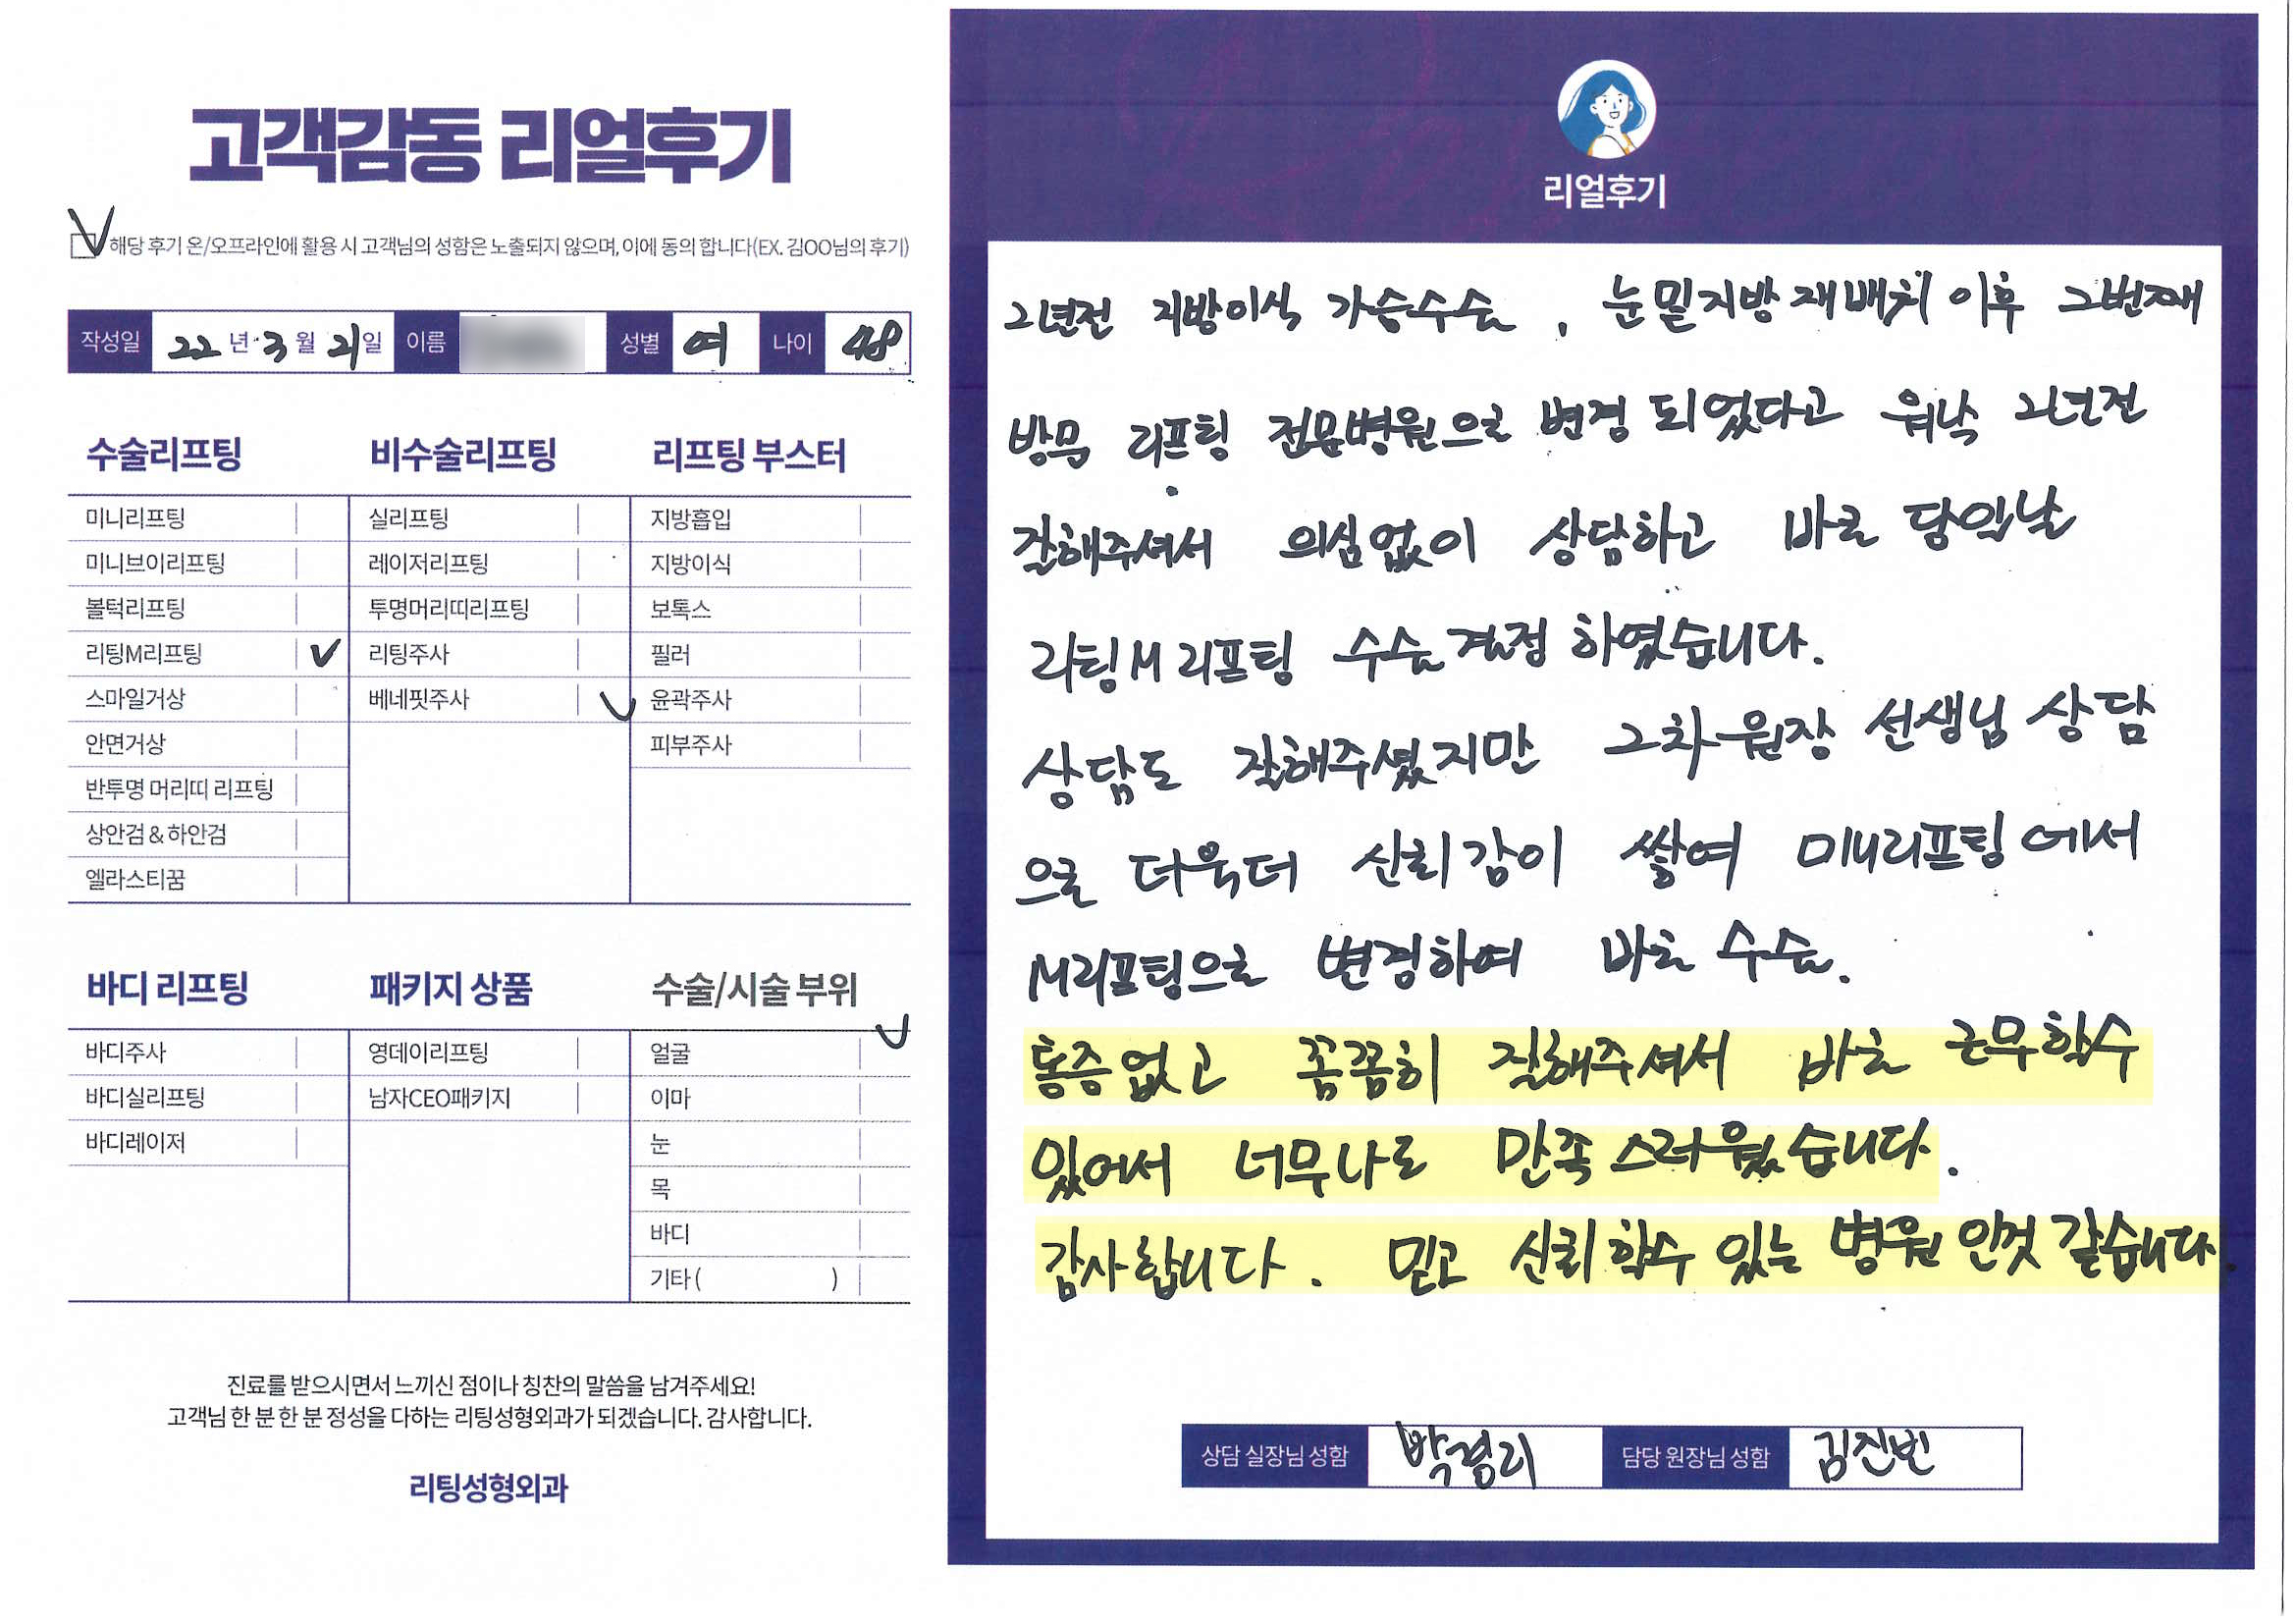 고객감동 리얼후기
해당 후기 온/오프라인에 활용 시 고객님의 성함은 노출되지 않으며, 이에 동의 합니다(EX. 김OO님의 후기)
작성일 22 년 3 월 21 일 이름 성별 여 나이 48
수술리프팅
미니리프팅
미니브이리프팅
볼턱리프팅
리팅M리프팅
스마일거상
안면거상
반투명 머리띠 리프팅
상안검 & 하안검
엘라스티꿈
비수술리프팅
실리프팅
레이저리프팅
투명머리띠리프팅
리팅주사
베네핏주사
리프팅 부스터
지방흡입
지방이식
보톡스
필러
윤곽주사
피부주사
바디 리프팅
바디주사
바디실리프팅
바디레이저
패키지 상품
영데이리프팅
남자CEO패키지
수술/시술 부위
얼굴
이마
눈
목
바디
기타 ( )
진료를 받으시면서 느끼신 점이나 칭찬의 말씀을 남겨주세요!
고객님 한 분 한 분 정성을 다하는 리팅성형외과가 되겠습니다. 감사합니다.
리팅성형외과
리얼후기
2년전 지방이식 가슴수술, 눈밑지방재배치 이후 2번째
방문 리프팅 전문병원으로 변경 되었다고 워낙 2년전
잘해주셔서 의심없이 상담하고 바로 당일날
리팅M리프팅 수술결정 하였습니다.
상담도 잘해주셨지만 2차 원장 선생님 상담
으로 더욱더 신뢰감이 쌓여 미니리프팅에서
M리프팅으로 변경하여 바로 수술.
통증없고 꼼꼼히 잘해주셔서 바로 근무할수
있어서 너무나도 만족스러웠습니다.
감사합니다. 믿고 신뢰할수 있는 병원인것 같습니다.
상담 실장님 성함 박경리 담당 원장님 성함 김진빈